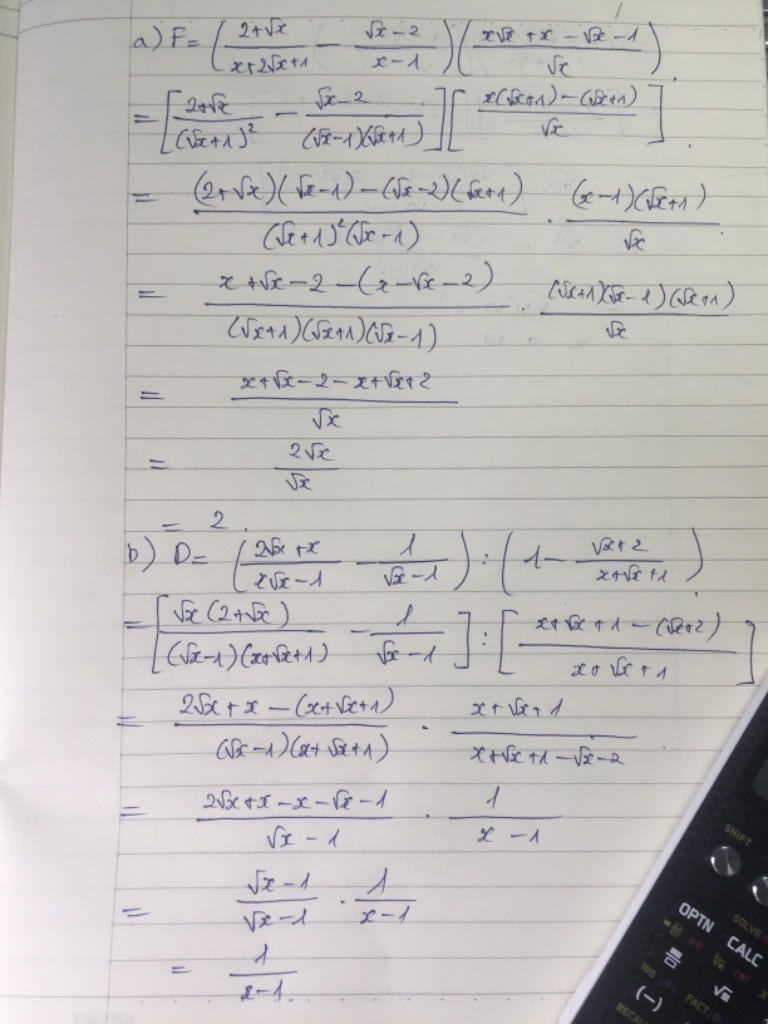 a) F = ( (2+√x)/(x+2√x+1) − (√x−2)/(x−1) ) ( (x√x+x−√x−1)/√x ).
= [ (2+√x)/(√x+1)² − (√x−2)/((√x−1)(√x+1)) ] [ (x(√x+1)−(√x+1))/√x ].
= ((2+√x)(√x−1)−(√x−2)(√x+1))/((√x+1)²(√x−1)) . ((x−1)(√x+1))/√x
= (x+√x−2−(x−√x−2))/((√x+1)(√x+1)(√x−1)) . ((√x+1)(√x−1)(√x+1))/√x
= (x+√x−2−x+√x+2)/√x
= 2√x/√x
= 2.
b) D = ( (2√x+x)/(x√x−1) − 1/(√x−1) ) : ( 1 − (√x+2)/(x+√x+1) )
= [ (√x(2+√x))/((√x−1)(x+√x+1)) − 1/(√x−1) ] : [ (x+√x+1−(√x+2))/(x+√x+1) ]
= (2√x+x−(x+√x+1))/((√x−1)(x+√x+1)) . (x+√x+1)/(x+√x+1−√x−2)
= (2√x+x−x−√x−1)/(√x−1) . 1/(x−1)
= (√x−1)/(√x−1) . 1/(x−1)
= 1/(x−1).
SHIFT
OPTN
CALC
SOLVE
log
√■
(−)
FACT
RECALL